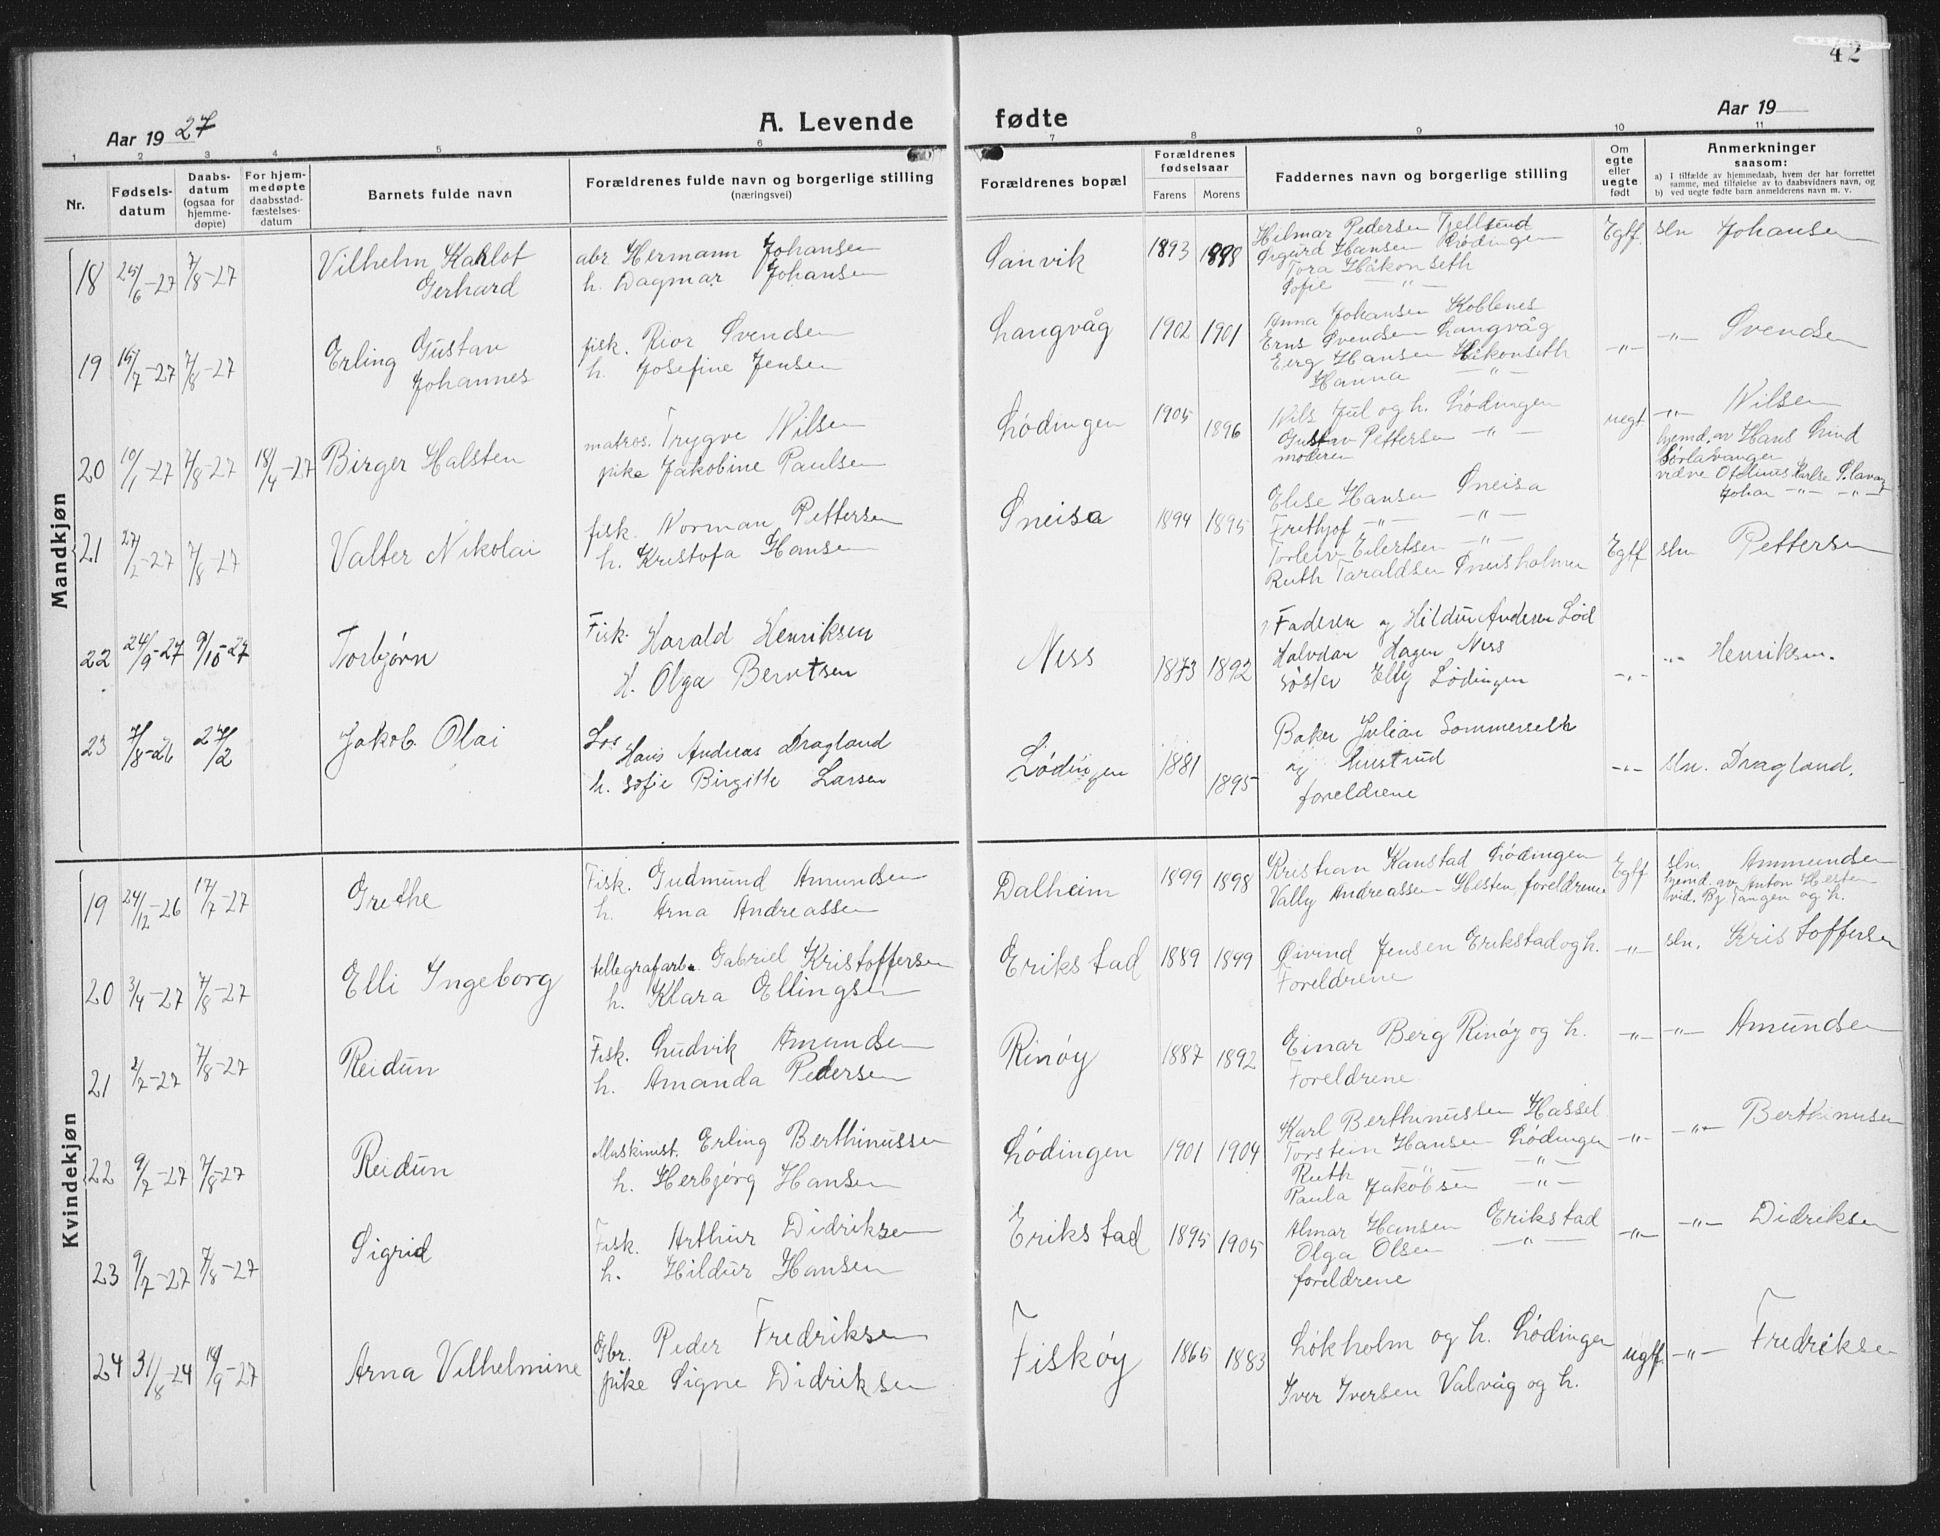 42
Aar 1927
A. Levende fødte
Aar 19
1 2 3 4 5 6 7 8 9 10 11
Nr.
Fødsels-
datum
Daabs-
datum
(ogsaa for
hjemme-
døpte)
For hjem-
medøpte
daabsstad-
fæstelses-
datum
Barnets fulde navn
Forældrenes fulde navn og borgerlige stilling
(næringsvei)
Forældrenes bopæl
Forældrenes
fødselsaar
Farens Morens
Faddernes navn og borgerlige stilling
Om
egte
eller
uegte
født
Anmerkninger
saasom:
a) I tilfælde av hjemmedaab, hvem der har forrettet
samme, med tilføielse av to daabsvidners navn, og
b) ved uegte født barn anmelderens navn m. v.
Mandkjøn
18 25/6-27 7/8-27
Vilhelm Karlot
Gerhard
abr Hermann Johansen
h. Dagmar Johansen
Sanvik
1893 1898
Hilmar Pedersen Kjellsund
Sigurd Hansen Rødingen
Tora Håkonseth
Sofie -"-
Egtf. sln Johansen
19 15/7-27 7/8-27
Erling Gustav
Johannes
fisk. Rior Svendsen
h. Josefine Jensen
Langvåg
1902 1901
Anna Johansen Koblenes
Erns Svendsen Langvåg
Eerg Hansen Håkonseth
Hanna -"-
-"- -"- Svendsen
20 10/1-27 7/8-27 18/4-27
Birger Halsten
matros. Trygve Nilsen
pike Jakobine Paulsen
Lødingen
1905 1896
Nils Jul og h. Lødingen
Gustav Pettersen -"-
moderen
uegt -"- Nilsen
hjemd. av Hans Lind
Sørlavangen
vidne Otelius Karlse S.lavang
Johan -"- -"-
21 27/2-27 7/8-27
Valter Nikolai
fisk. Norman Pettersen
h. Kristofa Hansen
Sneisa
1894 1895
Elise Hansen Sneisa
Frithjof -"- -"-
Torleiv Eilertsen -"-
Ruth Taraldsen Sneisholmen
Egtf sln Pettersen
22 24/9-27 9/10-27
Torbjørn
Fisk. Harald Henriksen
H. Olga Berntsen
Ness
1873 1892
Faderen og Hildur Andersen Lød
Halvdan Hagen Ness
søster Elly Lødingen
-"- -"- Henriksen.
23 7/8-26 27/2
Jakob Olai
Los Hans Andreas Dragland
h. Sofie Birgitte Larsen
Lødingen
1881 1895
Baker Julian Sommerseth
og hustrud
foreldrene
-"- sln. Dragland.
Kvindekjøn
19 24/12-26 17/7-27
Grethe
Fisk. Gudmund Amundsen
h. Arna Andreassen
Dalheim
1899 1898
Kristian Kanstad Lødingen
Vally Andreassen Hesten foreldrene
Egtf sln. Ammundsen
hjemd. av Anton Hesten
vid. Bj Tangen og h.
20 3/4-27 7/8-27
Elli Ingeborg
tellegrafarb. Gabriel Kristoffersen
h. Klara Ellingsen
Erikstad
1889 1899
Øivind Jensen Erikstad og h.
Foreldrene
-"- sln. Kristoffersen
21 2/7-27 7/8-27
Reidun
Fisk. Ludvik Amundsen
h. Amanda Pedersen
Rinøy
1887 1892
Einar Berg Rinøy og h.
Foreldrene
-"- -"- Amundsen
22 9/7-27 7/8-27
Reidun
Maskinist. Erling Berthinussen
h. Herbjørg Hansen
Lødingen
1901 1904
Karl Berthinussen Hassel
Torstein Hansen Lødingen
Ruth -"- -"-
Paula Jakobsen -"-
-"- -"- Berthinusen
23 9/7-27 7/8-27
Sigrid
Fisk. Arthur Didriksen
h. Hildur Hansen
Erikstad
1895 1905
Almar Hansen Erikstad
Olga Olsen -"-
foreldrene
-"- -"- Didriksen
24 31/8-24 18/9-27
Arna Vilhelmine
Gbr. Peder Fredriksen
pike Signe Didriksen
Fiskøy
1865 1883
Løkholm og h. Lødingen
Iver Iversen Valvåg og h.
uegtf. -"- Fredriksen